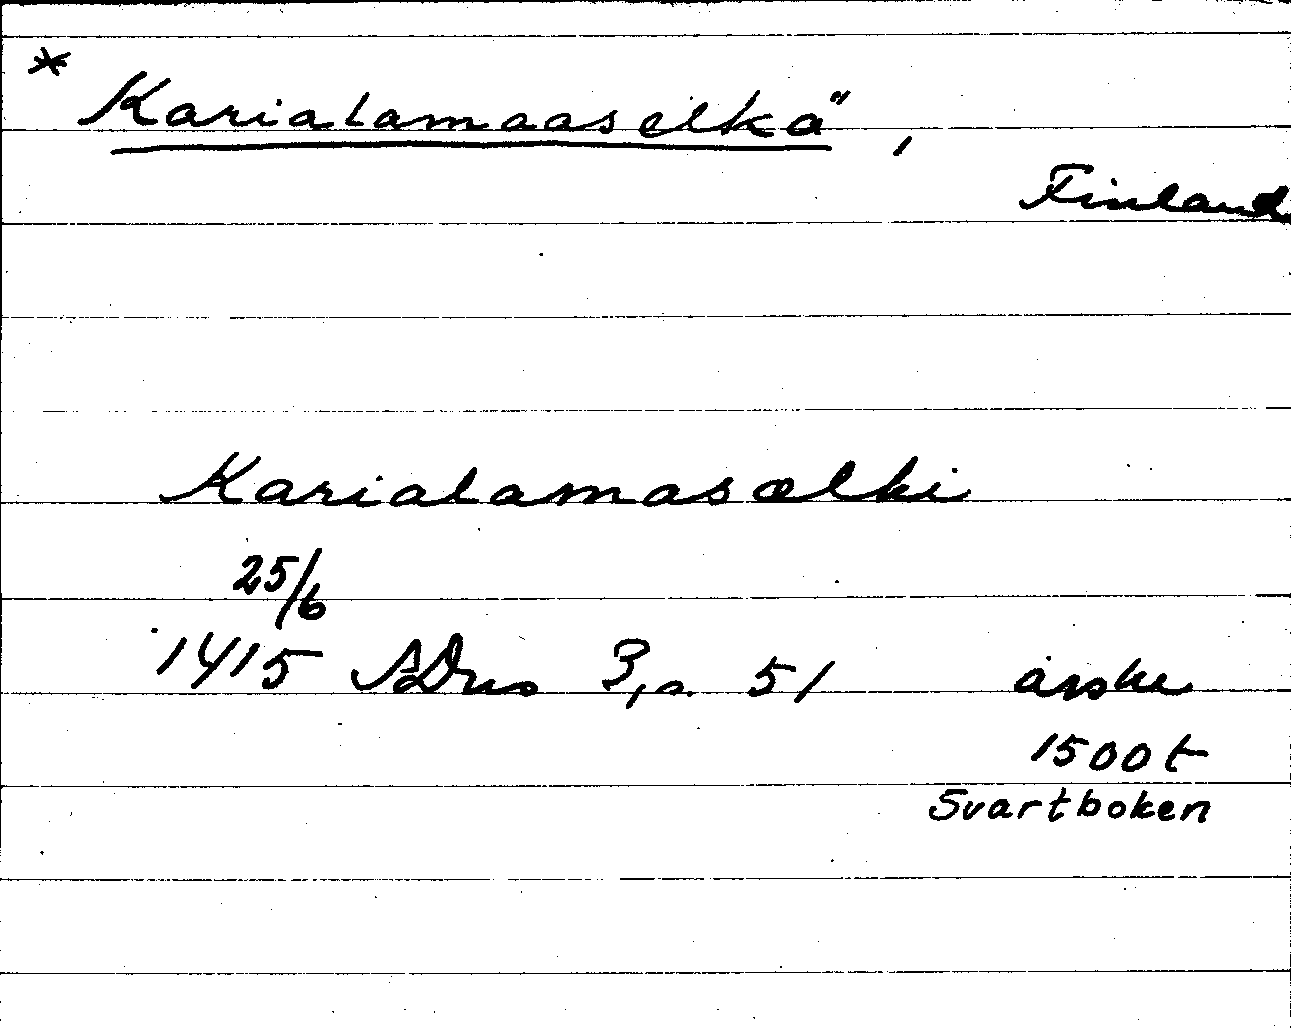 * Karialamaaselkä,
Finland
Karialamasælki
25/6
1415 SDns 3, s. 51 avskr
1500 t
Svartboken